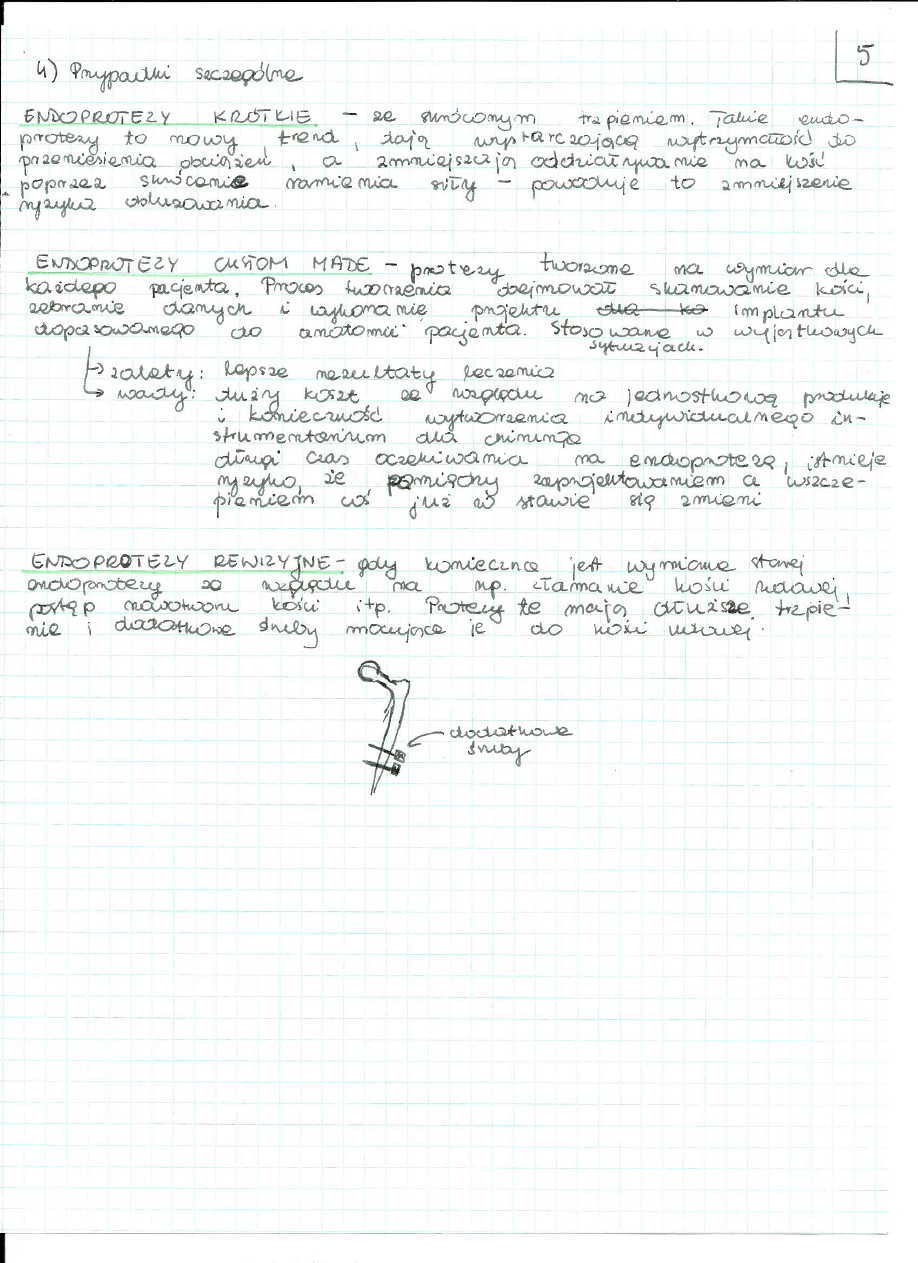 5
4) Przypadki szczególne
ENDOPROTEZY KRÓTKIE – ze skróconym trzpieniem. Takie endo-
protezy to nowy trend, dają wystarczającą wytrzymałość do
przeniesienia obciążeń, a zmniejszają oddziaływanie na kość
poprzez skrócenie ramienia siły – powoduje to zmniejszenie
ryzyka obluzowania.
ENDOPROTEZY CUSTOM MADE – protezy tworzone na wymiar dla
każdego pacjenta. Proces tworzenia obejmował skanowanie kości,
zebranie danych i wykonanie projektu dla ko implantu
dopasowanego do anatomii pacjenta. Stosowane w wyjątkowych
sytuacjach.
→ zalety: lepsze rezultaty leczenia
→ wady: duży koszt ze względu na jednostkową produkcję
i konieczność wytworzenia indywidualnego in-
strumentarium dla chirurga
długi czas oczekiwania na endoprotezę, istnieje
ryzyko, że pomiędzy zaprojektowaniem a wszcze-
pieniem coś już w stawie się zmieni
ENDOPROTEZY REWIZYJNE – gdy konieczna jest wymiana starej
endoprotezy ze względu na np. złamanie kości udowej,
postęp nowotworu kości itp. Protezy te mają dłuższe trzpie-
nie i dodatkowe śruby mocujące je do kości udowej.
dodatkowe
śruby